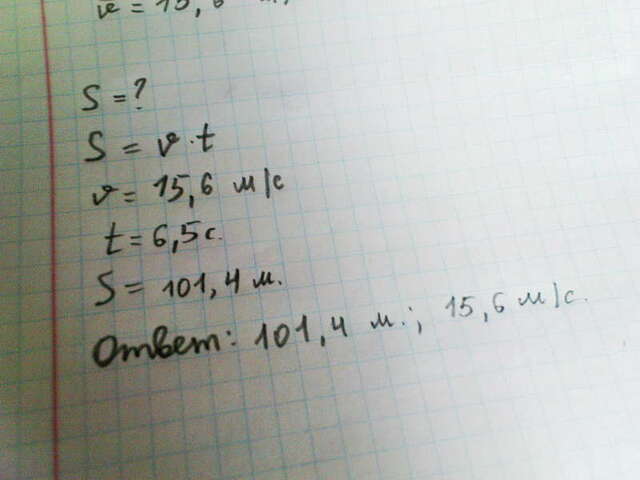 S = ?
S = v · t
v = 15,6 м/с
t = 6,5 с.
S = 101,4 м.
Ответ: 101,4 м.; 15,6 м/с.